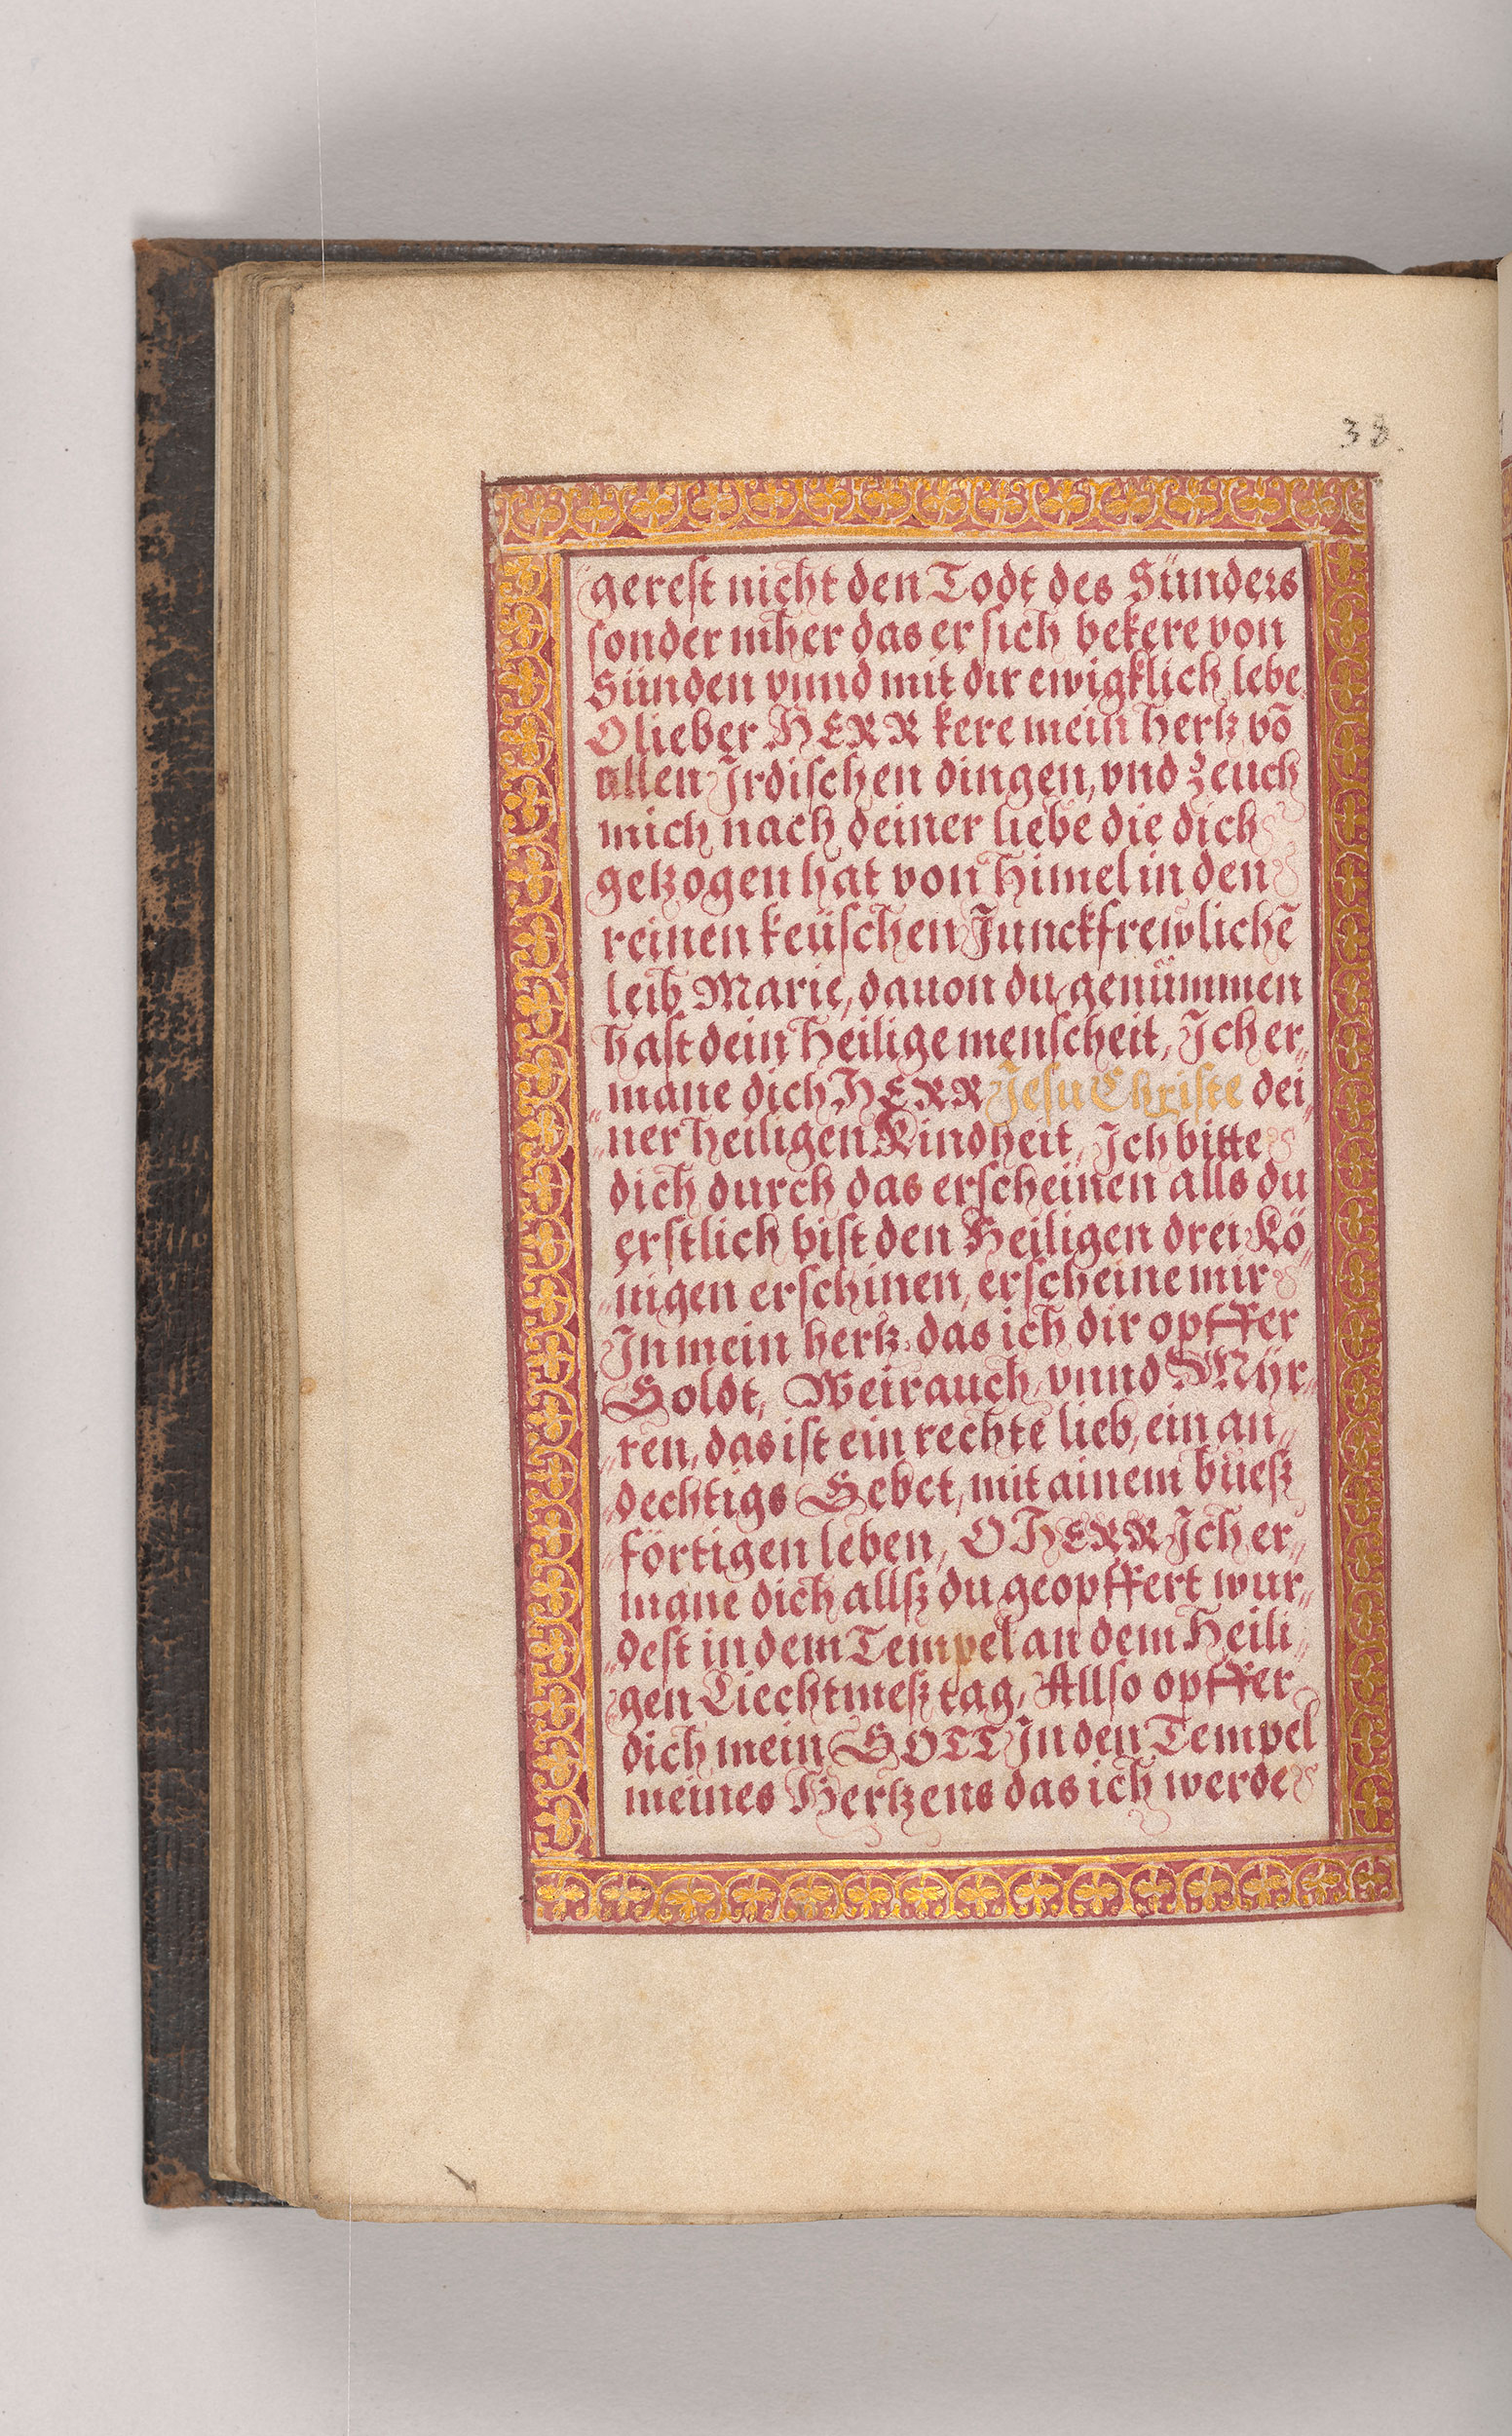 38.
gerest nicht den Todt des Sünders
sonder mher das er sich bekere von
Sünden vnnd mit dir ewigklich lebe
O lieber HERR kere mein hertz võ
allen Jrdischen dingen, vnd zeuch
mich nach deiner liebe die dich
getzogen hat von Himel in den
reinen keüschen Junckfrewlichẽ
leib Marie, dauon du genümmen
hast dein Heilige menscheit, Jch er„
„mane dich HERR Jesu Christe dei„
„ner heiligen Kindheit, Jch bitte
dich durch das erscheinen alls du
erstlich bist den Heiligen drei Kö„
„nigen erschinen, erscheine mir
Jn mein hertz das ich dir opffer
Goldt, Weirauch, vnnd Mÿr„
„ren, das ist ein rechte lieb, ein an„
„dechtigs Gebet, mit ainem buesz
„förtigen leben, O HERR Jch er„
mane dich allsz du geopffert wur„
„dest in dem Tempel an dem Heili„
„gen Liechtmesz tag, Allso opffer
dich mein GOTT Jn den Tempel
meines Hertzens das ich werde